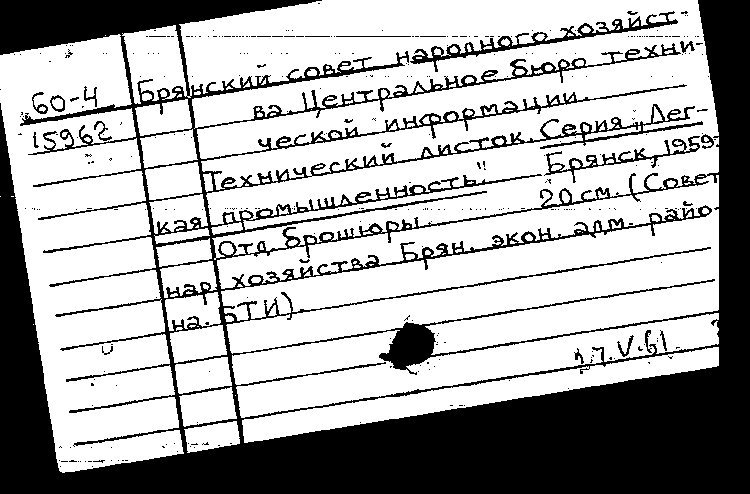 60-4 Брянский совет народного хозяйст-
15962 ва. Центральное бюро техни-
ческой информации.
Технический листок. Серия „Лег-
кая промышленность." Брянск, 1959.
Отд. брошюры. 20 см. (Совет
нар. хозяйства Брян. экон. адм. райо-
на. БТИ).
17.V.61